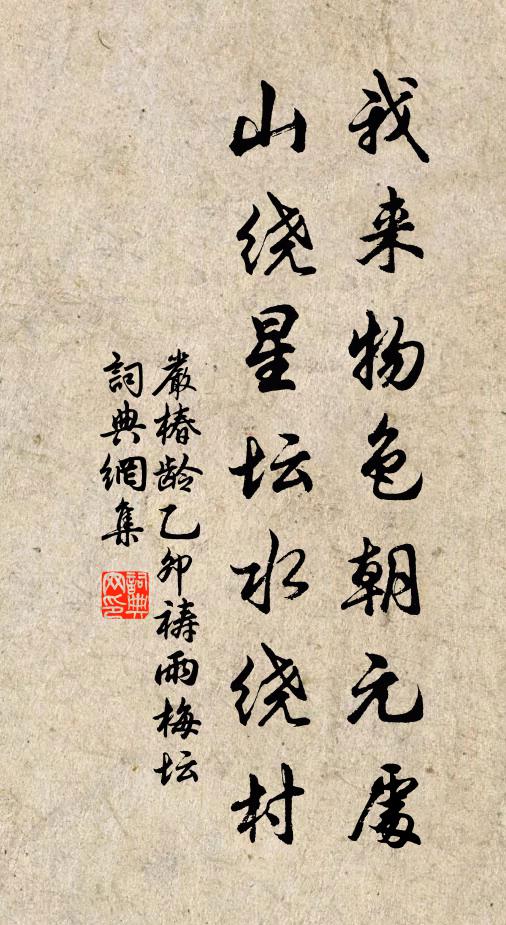 我来物色朝元處
山绕星坛水绕村
嚴椿龄乙卯祷雨梅坛
詞典網集
詞典网印